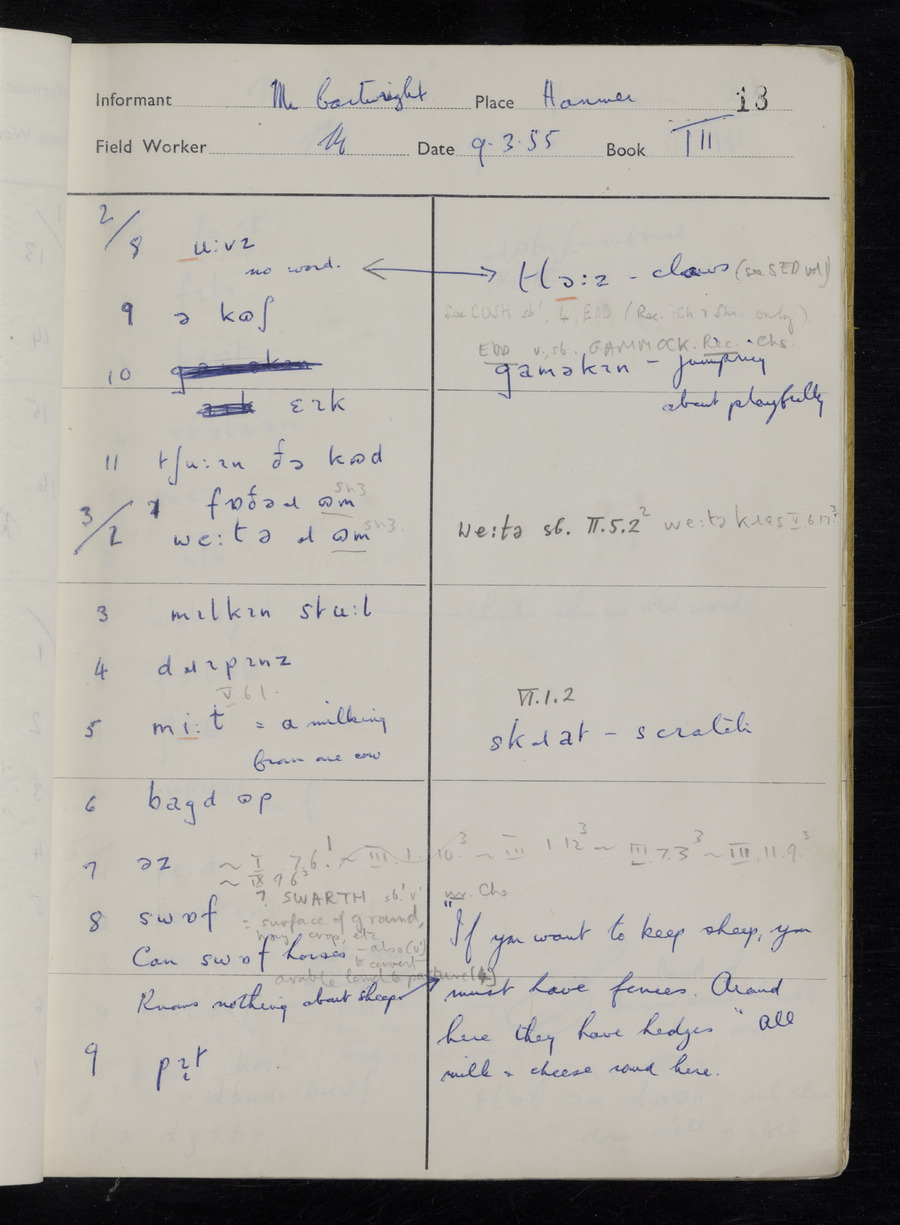 Informant Mr Cartwright Place Hanmer 13
Field Worker Date 9.3.55 Book III
2/8 u:vz
no word.
ə kɷʃ
9
10
ɛɪk
11 tʃu:ɪn ðə kɷd
3/2
fɒðəɹ ɷm
we:tə ɹ ɷm
3 mɪlkɪn stu:l
4 dɹɪpɪnz
V 6 1.
5 mi:t = a milking
from one cow
6 bagd ɷp
7 əz ~ I 7.6.1 ~ III 1.10.3 ~ III 1.12 3 ~ III.7.3 3 ~ III.11.9.3
~ IX 9 6 2
? SWARTH sb.1 v1 nw. Chs
8 swɒf = surface of ground,
hay crop, etc
Can swɒf horses - also (v)
to convert
arable land to pasture (4)
Knows nothing about sheep
9 pɪt
- claws (see SED vol I)
see CUSH sb1, 4, EDD (Rec. Ch & Shr. only)
EDD v., sb. GAMMOCK. Rec. Chs.
gaməkɪn - jumping
about playfully
we:tə sb. II.5.2 2
VI.1.2
skɹat - scratch
"If you want to keep sheep, you
must have fences. Around
here they have hedges" All
milk & cheese round here.